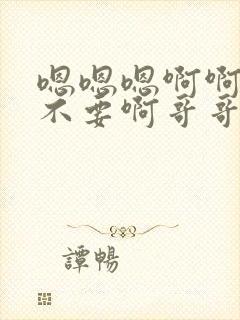 嗯嗯嗯啊啊
不要啊哥哥
譚暢